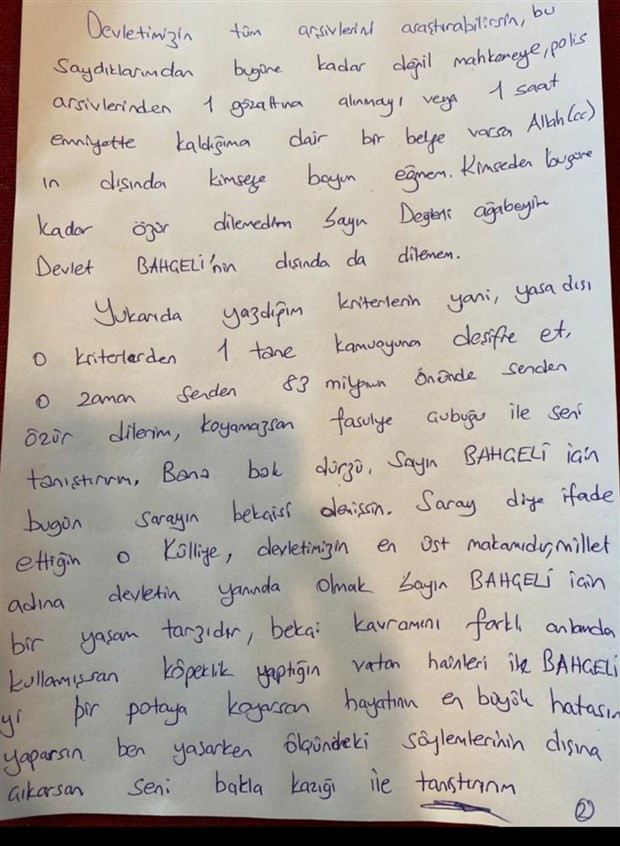 Devletimizin tüm arşivlerini araştırabilirsin, bu
saydıklarımdan bugüne kadar değil mahkemeye, polis
arsivlerinden 1 gözaltına alınmayı veya 1 saat
emniyette kaldığıma dair bir belge varsa Allah (cc)
ın dışında kimseye boyun eğmem. Kimseden bugüne
kadar özür dilemedim Sayın Değerli ağabeyim
Devlet BAHÇELİ'nin dışında da dilemem.
Yukarıda yazdığım kriterlerin yani, yasa dışı
o kriterlerden 1 tane kamuoyuna desifre et,
o zaman senden 83 milyonun önünde senden
özür dilerim, koyamazsan fasulye çubuğu ile seni
tanıştırırım, Bana bak dürzü, Sayın BAHÇELİ için
bugün sarayın bekçisi demişsin. Saray diye ifade
ettiğin o Külliye, devletimizin en üst makamıdır, millet
adına devletin yanında olmak Sayın BAHÇELİ için
bir yaşam tarzıdır, bekçi kavramını farklı anlamda
kullanmışsan köpeklik yaptığın vatan hainleri ile BAHÇELİ
yi bir potaya koyarsan hayatının en büyük hatasın
yaparsın ben yaşarken ölçündeki söylemlerinin dışına
çıkarsan seni bakla kazığı ile tanıştırırım
2